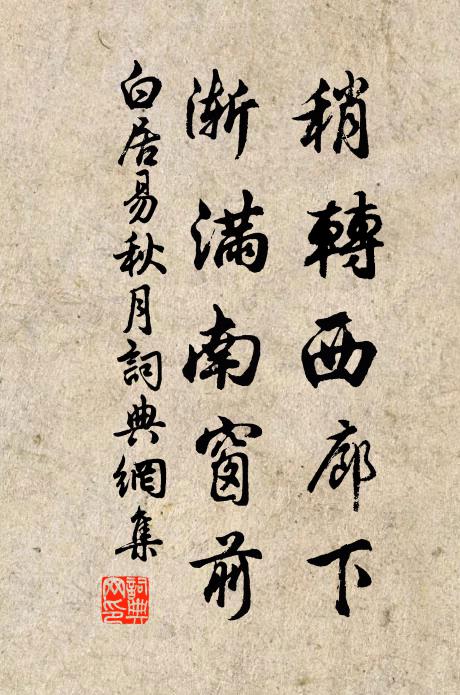 稍轉西廊下
漸滿南窗前
白居易秋月詞典網集
詞典网印